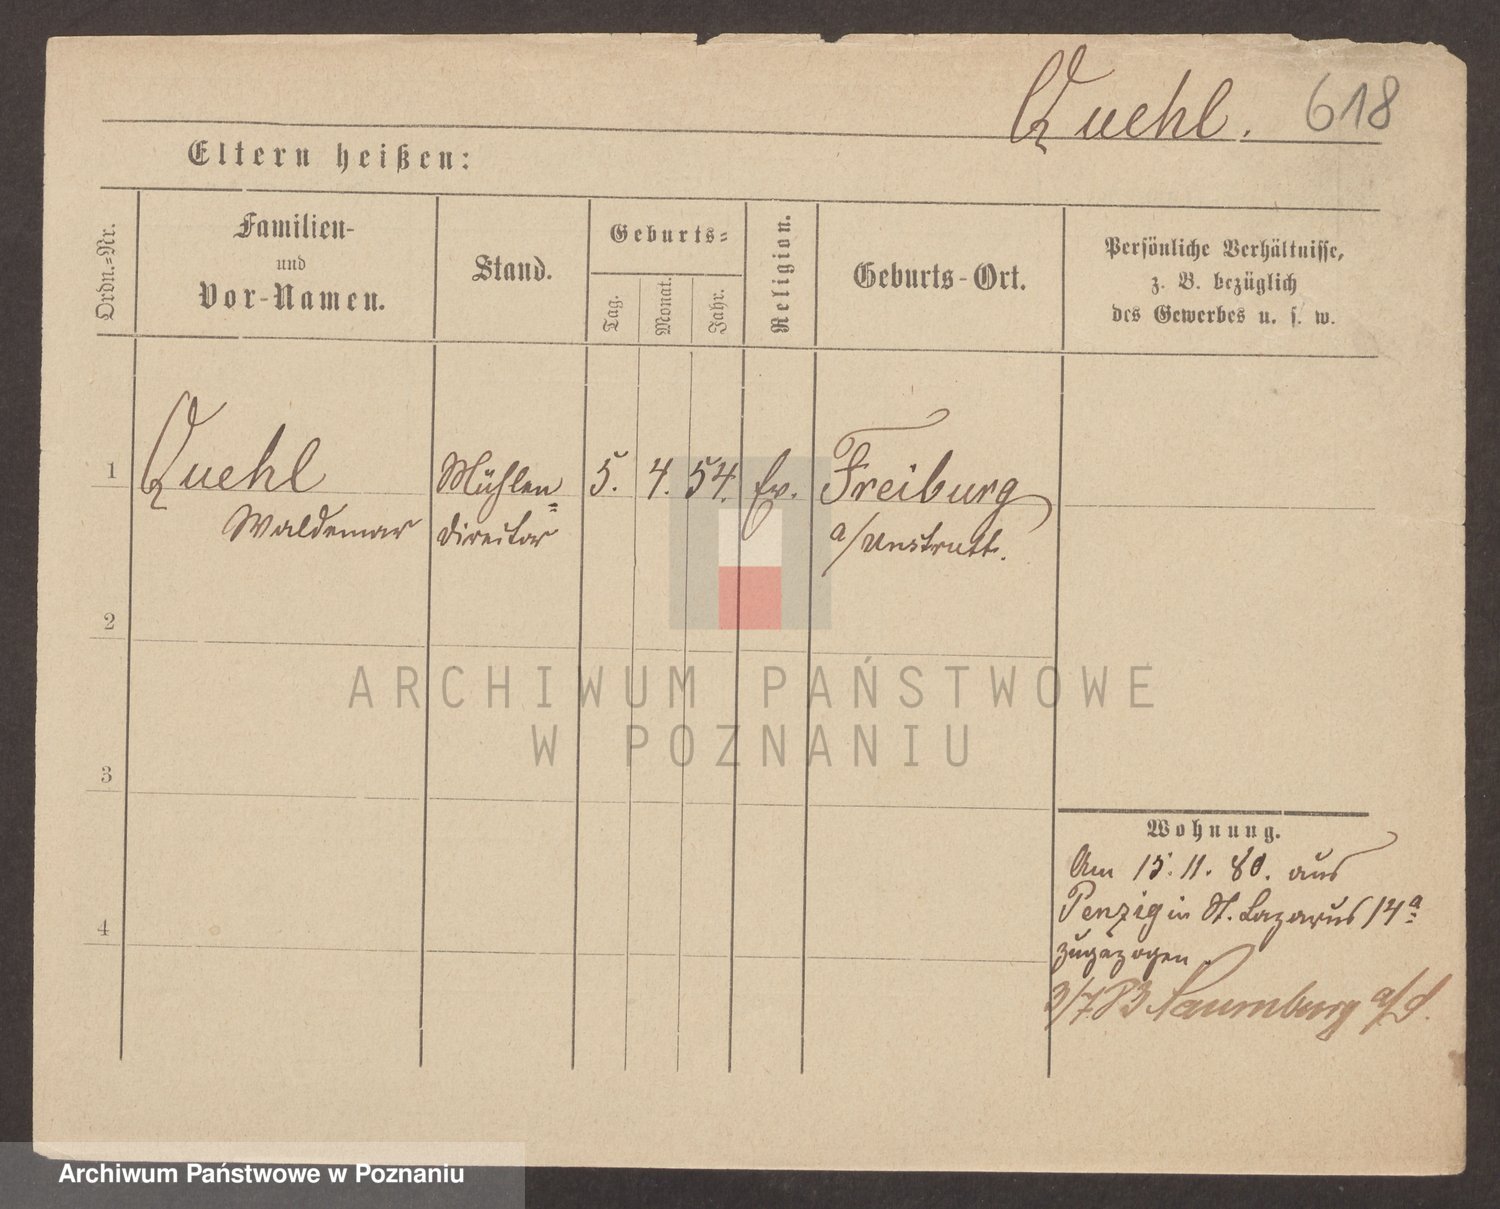 Quehl. 618
Eltern heißen:
Ordn.-Nr.
Familien-
und
Vor-Namen.
Stand.
Geburts-
Tag.
Monat.
Jahr.
Religion.
Geburts-Ort.
Persönliche Verhältnisse,
z. B. bezüglich
des Gewerbes u. s. w.
1 Quehl Mühlen= 5. 4. 54. Ev. Freiburg
Waldemar director a/Unstrutt.
2
3
4
Wohnung.
Am 15. 11. 80. aus
Penzig in St. Lazarus 14a
zugezogen
3/7 83 Naumburg a/S.
ARCHIWUM PAŃSTWOWE
W POZNANIU
Archiwum Państwowe w Poznaniu